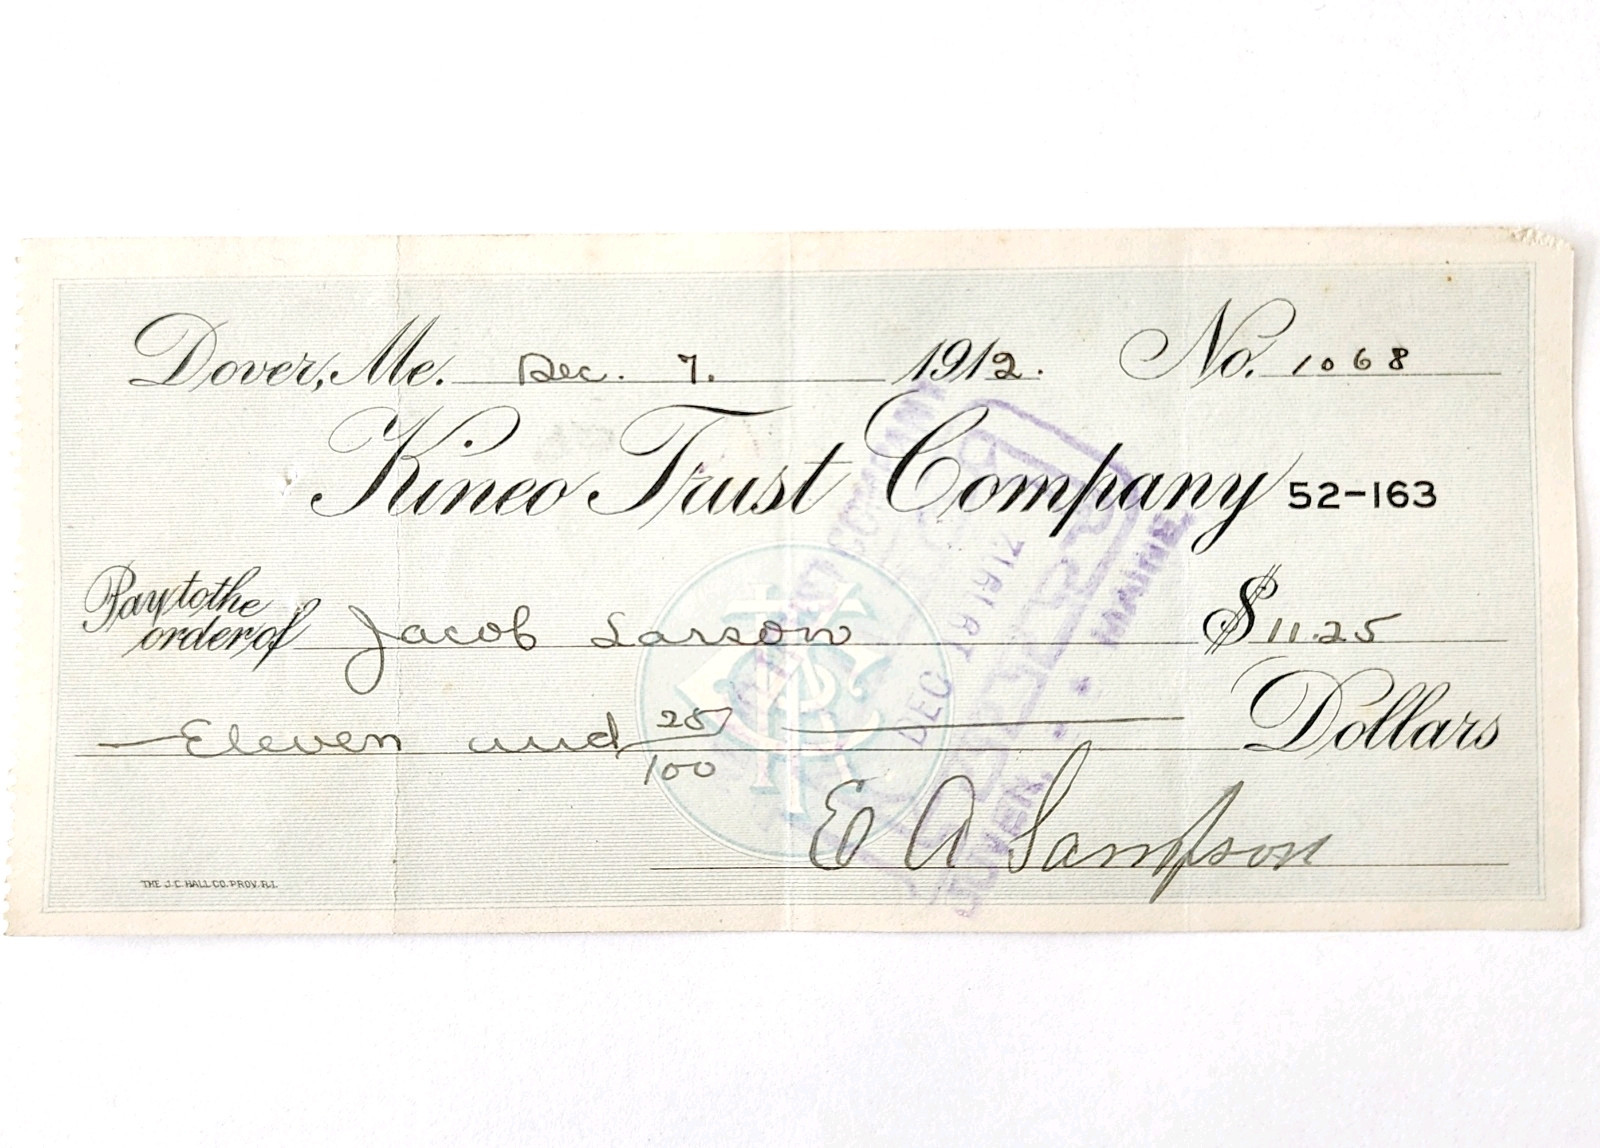 Dover, Me. Dec. 7. 1912. No. 1068
Kineo Trust Company 52-163
Pay to the order of Jacob Larson $11.25
Eleven and 25/100 Dollars
E A Sampson
THE J.C. HALL CO. PROV. R.I.
COMPANY
DEC 18 1912
DOVER, MAINE